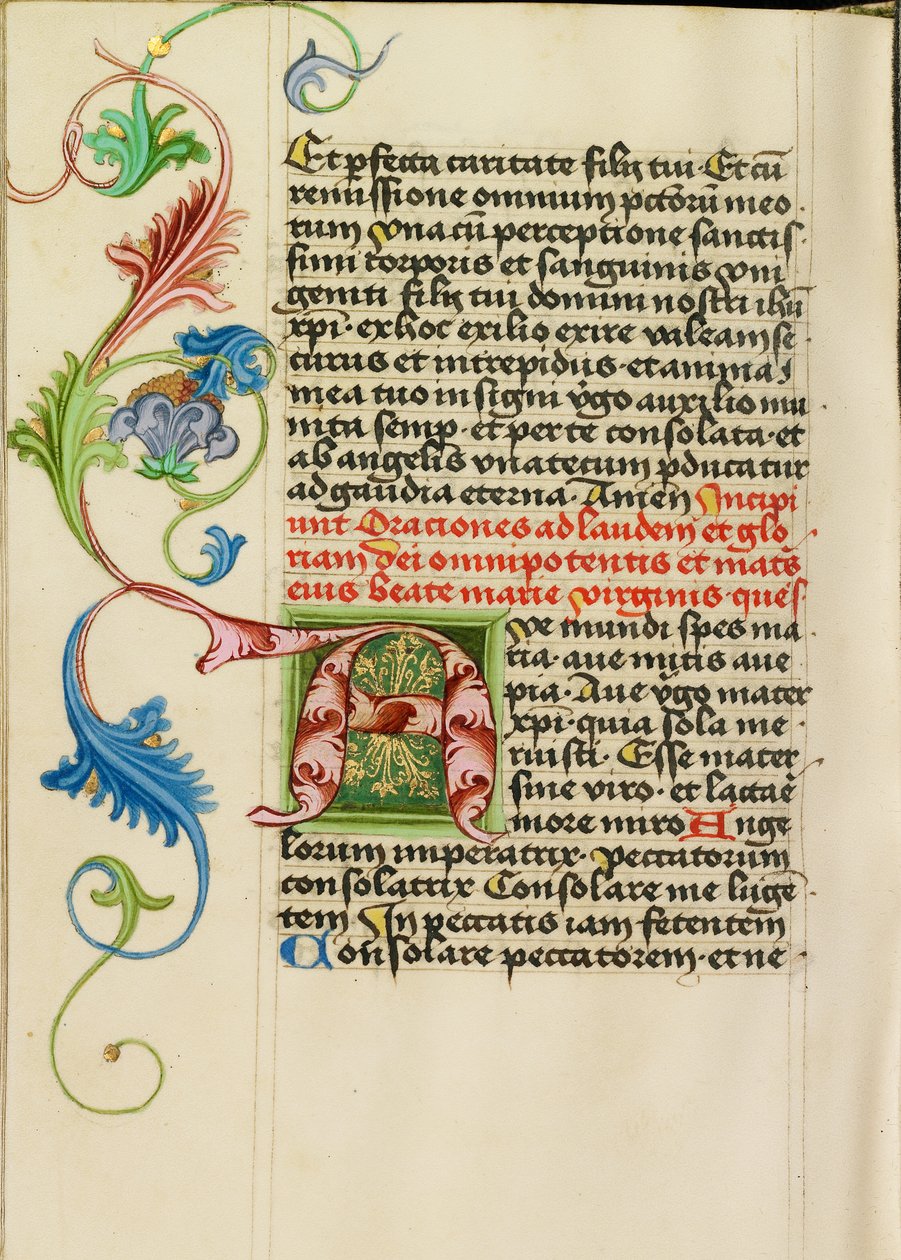 Et ꝑfecta caritate filij tui· Et cū
remissione omnium pctōrū meo
rum Vna cū perceptione sanctis
simi corporis et sanguinis vni
geniti filij tui domini nostri ihū
xp̄i· ex hoc exilio exire valeam se
curus et intrepidus· et anima
mea tuo insigni v̄go auxilio mu
nita semꝑ· et per te consolata· et
ab angelis vna tecum ꝑducatur
ad gaudia eterna· Amen Incipi
unt Oraciones ad laudem et glo
riam Dei omnipotentis et mat̄s
eius beate marie virginis· ques
Ave mundi spes ma
ria· aue mitis aue
pia· Aue v̄go mater
xp̄i· quia sola me
ruisti· Esse mater
sine viro· et lactāe
more miro Ange
lorum imperatrix· Peccatorum
consolatrix Consolare me lugē
tem In peccatis iam fetentem
Consolare peccatorem· et ne